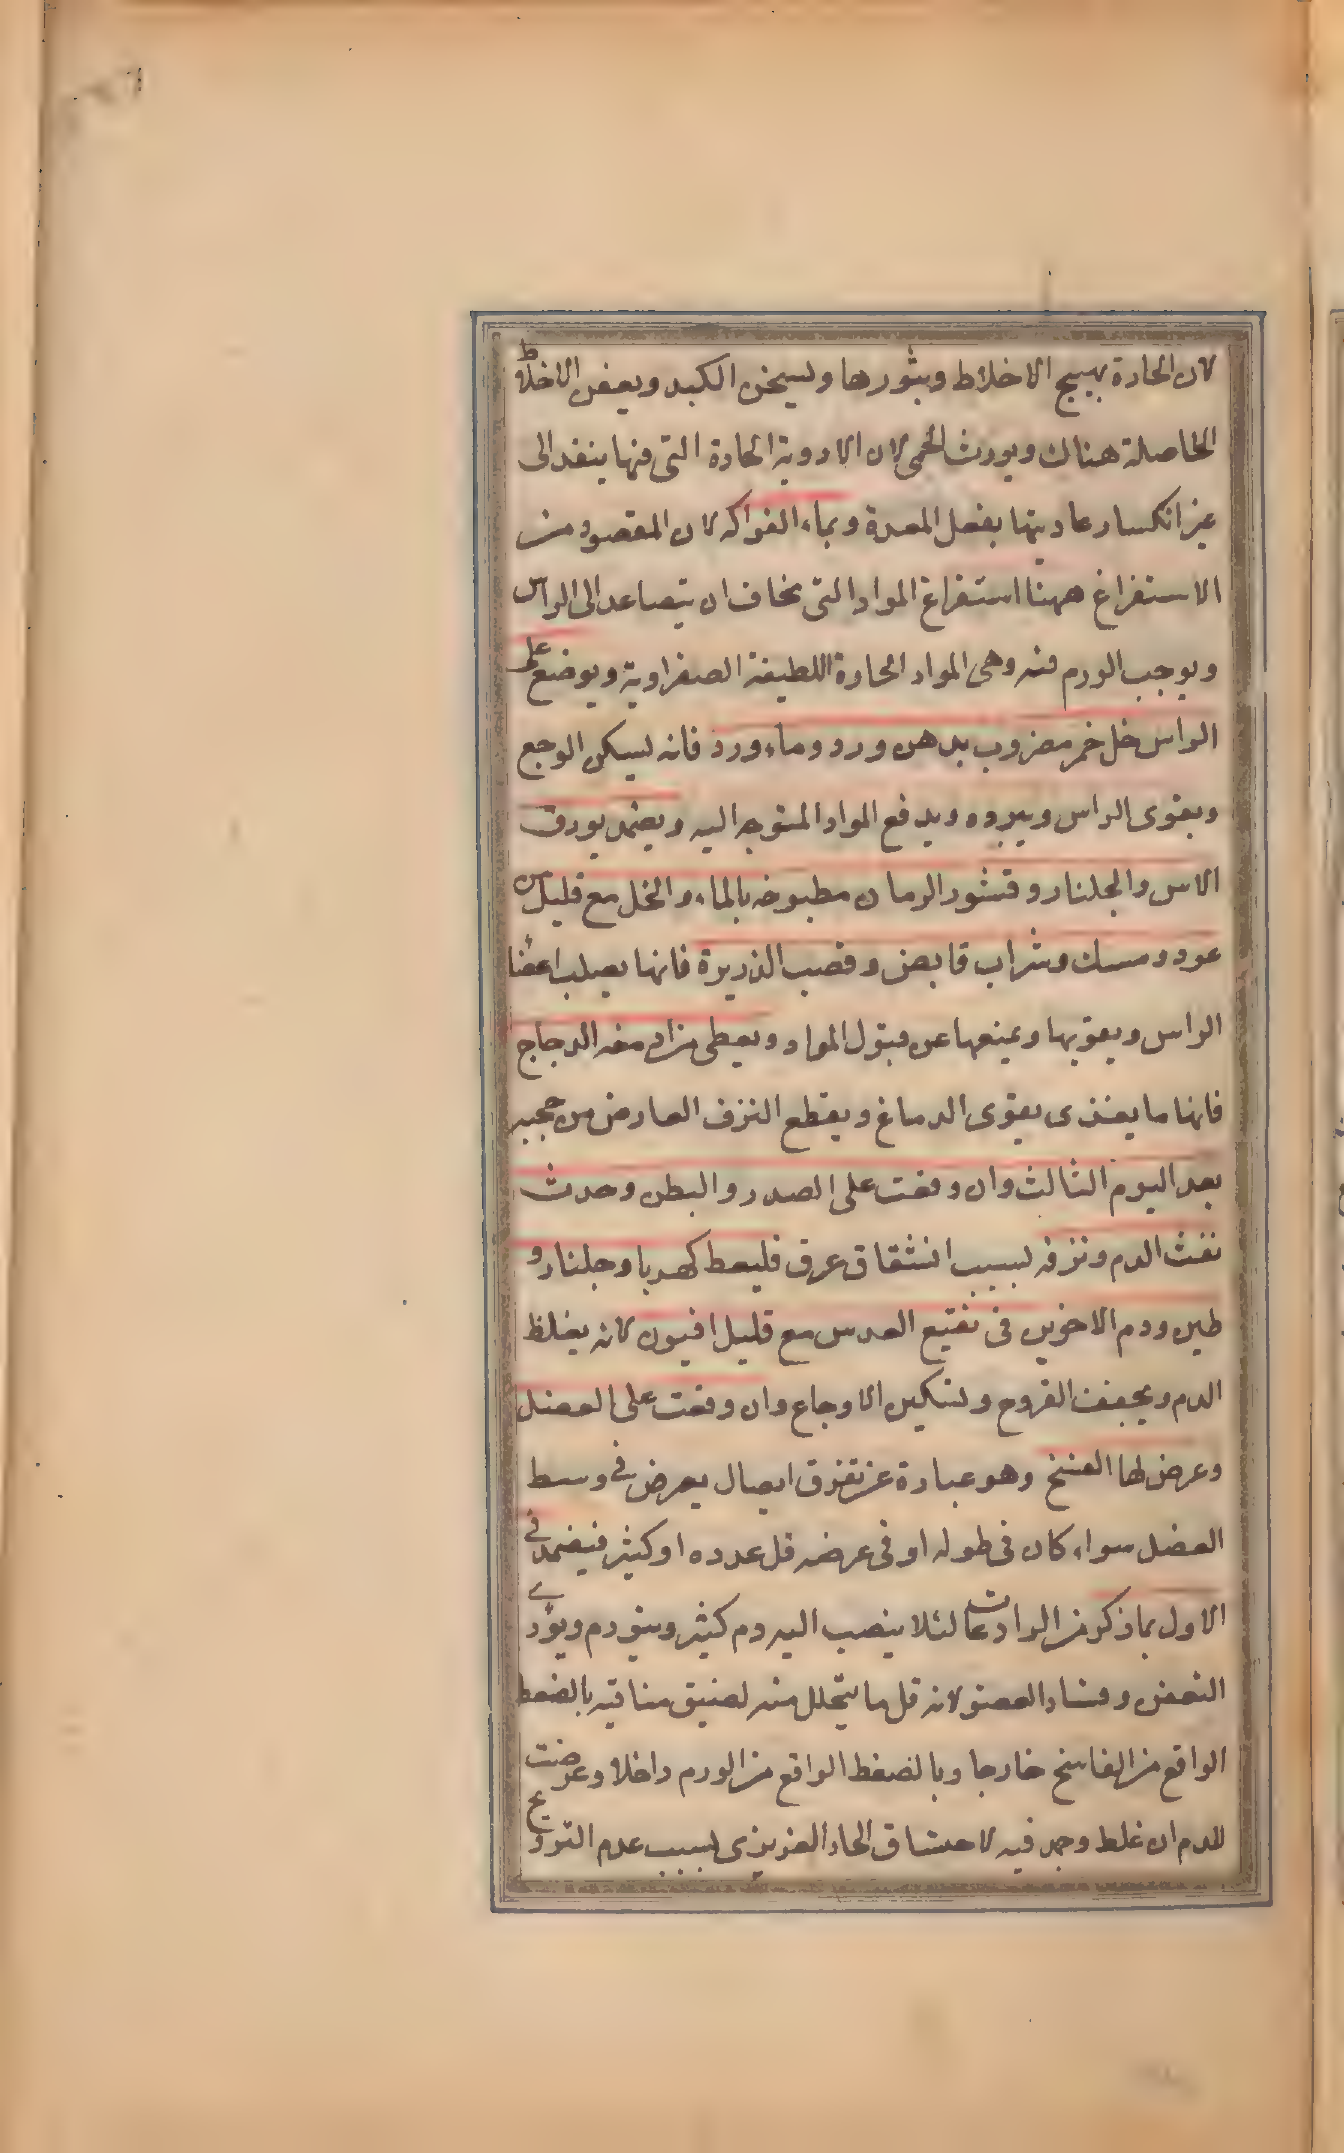 لان الحادة يهيج الاخلاط ويثورها ويسخن الكبد ويعفن الاخلاط
الحاصلة هناك ويورث الحمى لان الادوية الحادة التى فيها ينفذ الى
عن انكسار عاديتها بفعل المعدة وبماء الفواكه لان المقصود من
الاستفراغ ههنا استفراغ المواد التى يخاف ان يتصاعد الى الراس
ويوجب الورم فيه وهى المواد الحارة اللطيفة الصفراوية ويوضع على
الراس خل خمر مضروب بدهن ورد وماء ورد فانه يسكن الوجع
ويقوى الراس ويبرده ويدفع المواد المتوجه اليه ويضمد بورق
الاس والجلنار وقشور الرمان مطبوخه بالماء والخل مع قليل من
عود ومسك وشراب قابض وقصب الذريرة فانها يصلب اعضاء
الراس ويقويها ويمنعها عن قبول المواد ويعطى من ادمغه الدجاج
فانها ما يغذى يقوى الدماغ ويقطع النزف العارض من حجبه
بعد اليوم الثالث وان وقعت على الصدر والبطن وحدث
نفث الدم ونزفه بسبب انشقاق عرق فليعط كهربا وجلنار و
طين ودم الاخوين فى نقيع العدس مع قليل افيون لانه يغلظ
الدم ويجفف القروح ولتسكين الاوجاع وان وقعت على العضل
وعرض لها الفسخ وهو عبارة عن تفرق اتصال يعرض فى وسط
العضل سواء كان فى طوله او فى عرضه قل عدده او كثر فيضمد فى
الاول بما ذكر من الرادعات لئلا ينصب اليه دم كثير ويتورم ويؤدى
التعفن وفساد العضو لانه قل ما يتحلل منه لضيق منافذه بالضغط
الواقع من الفاسخ خارجا وبالضغط الواقع من الورم داخلا وعرضت
للدم ان غلظ وجمد فيه لاحتناق الحار الغريزى بسبب عدم الترويح